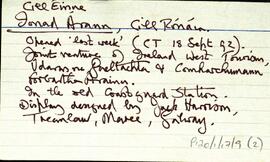 Cill Éinne
Ionad Arann, Cill Rónáin
Opened 'last week' (CT 18 Sept 92).
Joint venture of Ireland West Tourism,
Udaras na Gaeltachta &
forbartha Arainn.
In the old Coastguard Station.
Display designed by Jack Harrison,
Tree Maree, Galway.
P120/1/17/9 (2)